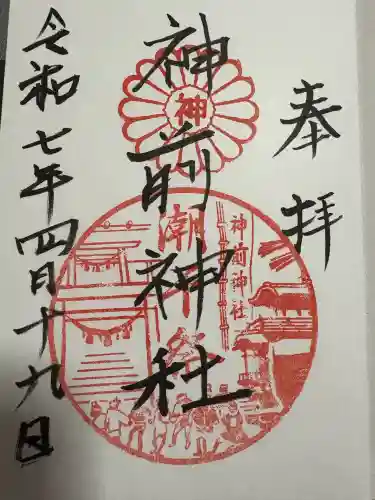 奉拝
神前神社
神
神前神社
令和七年四月十九日